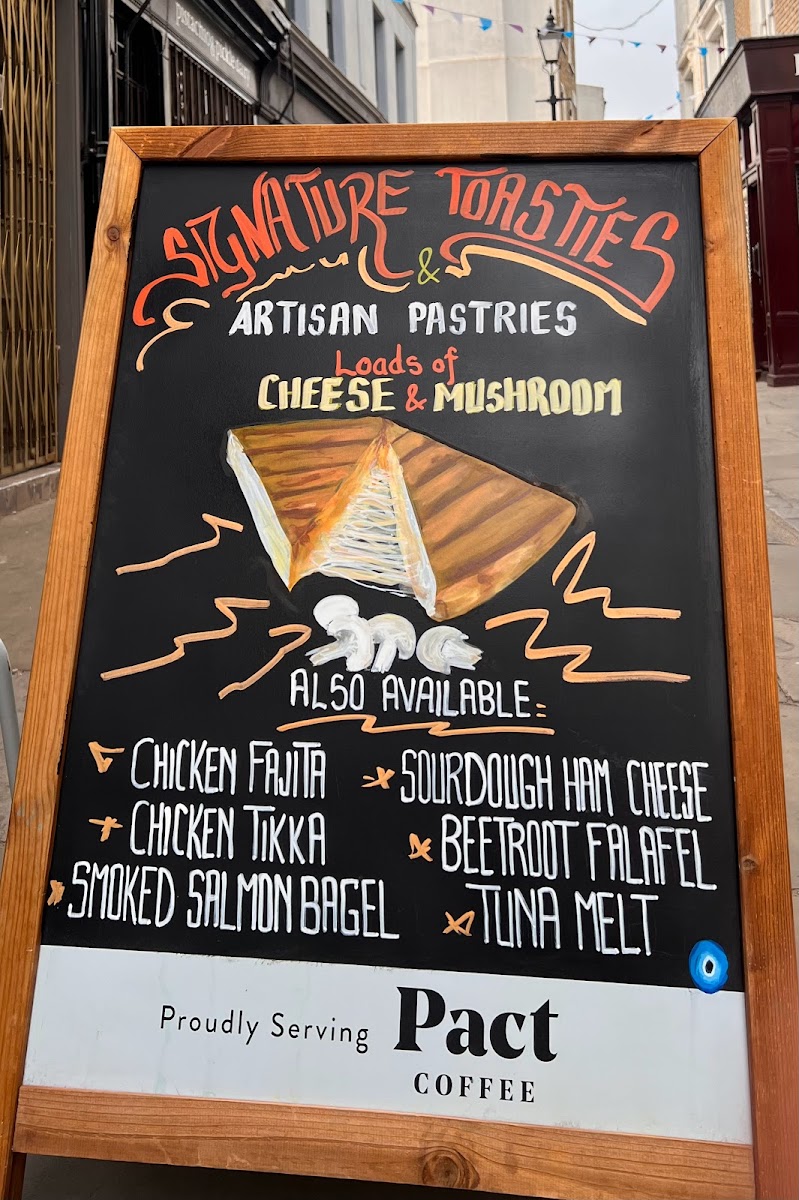 pistachio & pickle dairy
SIGNATURE TOASTIES
&
ARTISAN PASTRIES
Loads of
CHEESE & MUSHROOM
ALSO AVAILABLE:
CHICKEN FAJITA
CHICKEN TIKKA
SMOKED SALMON BAGEL
SOURDOUGH HAM CHEESE
BEETROOT FALAFEL
TUNA MELT
Proudly Serving Pact
COFFEE